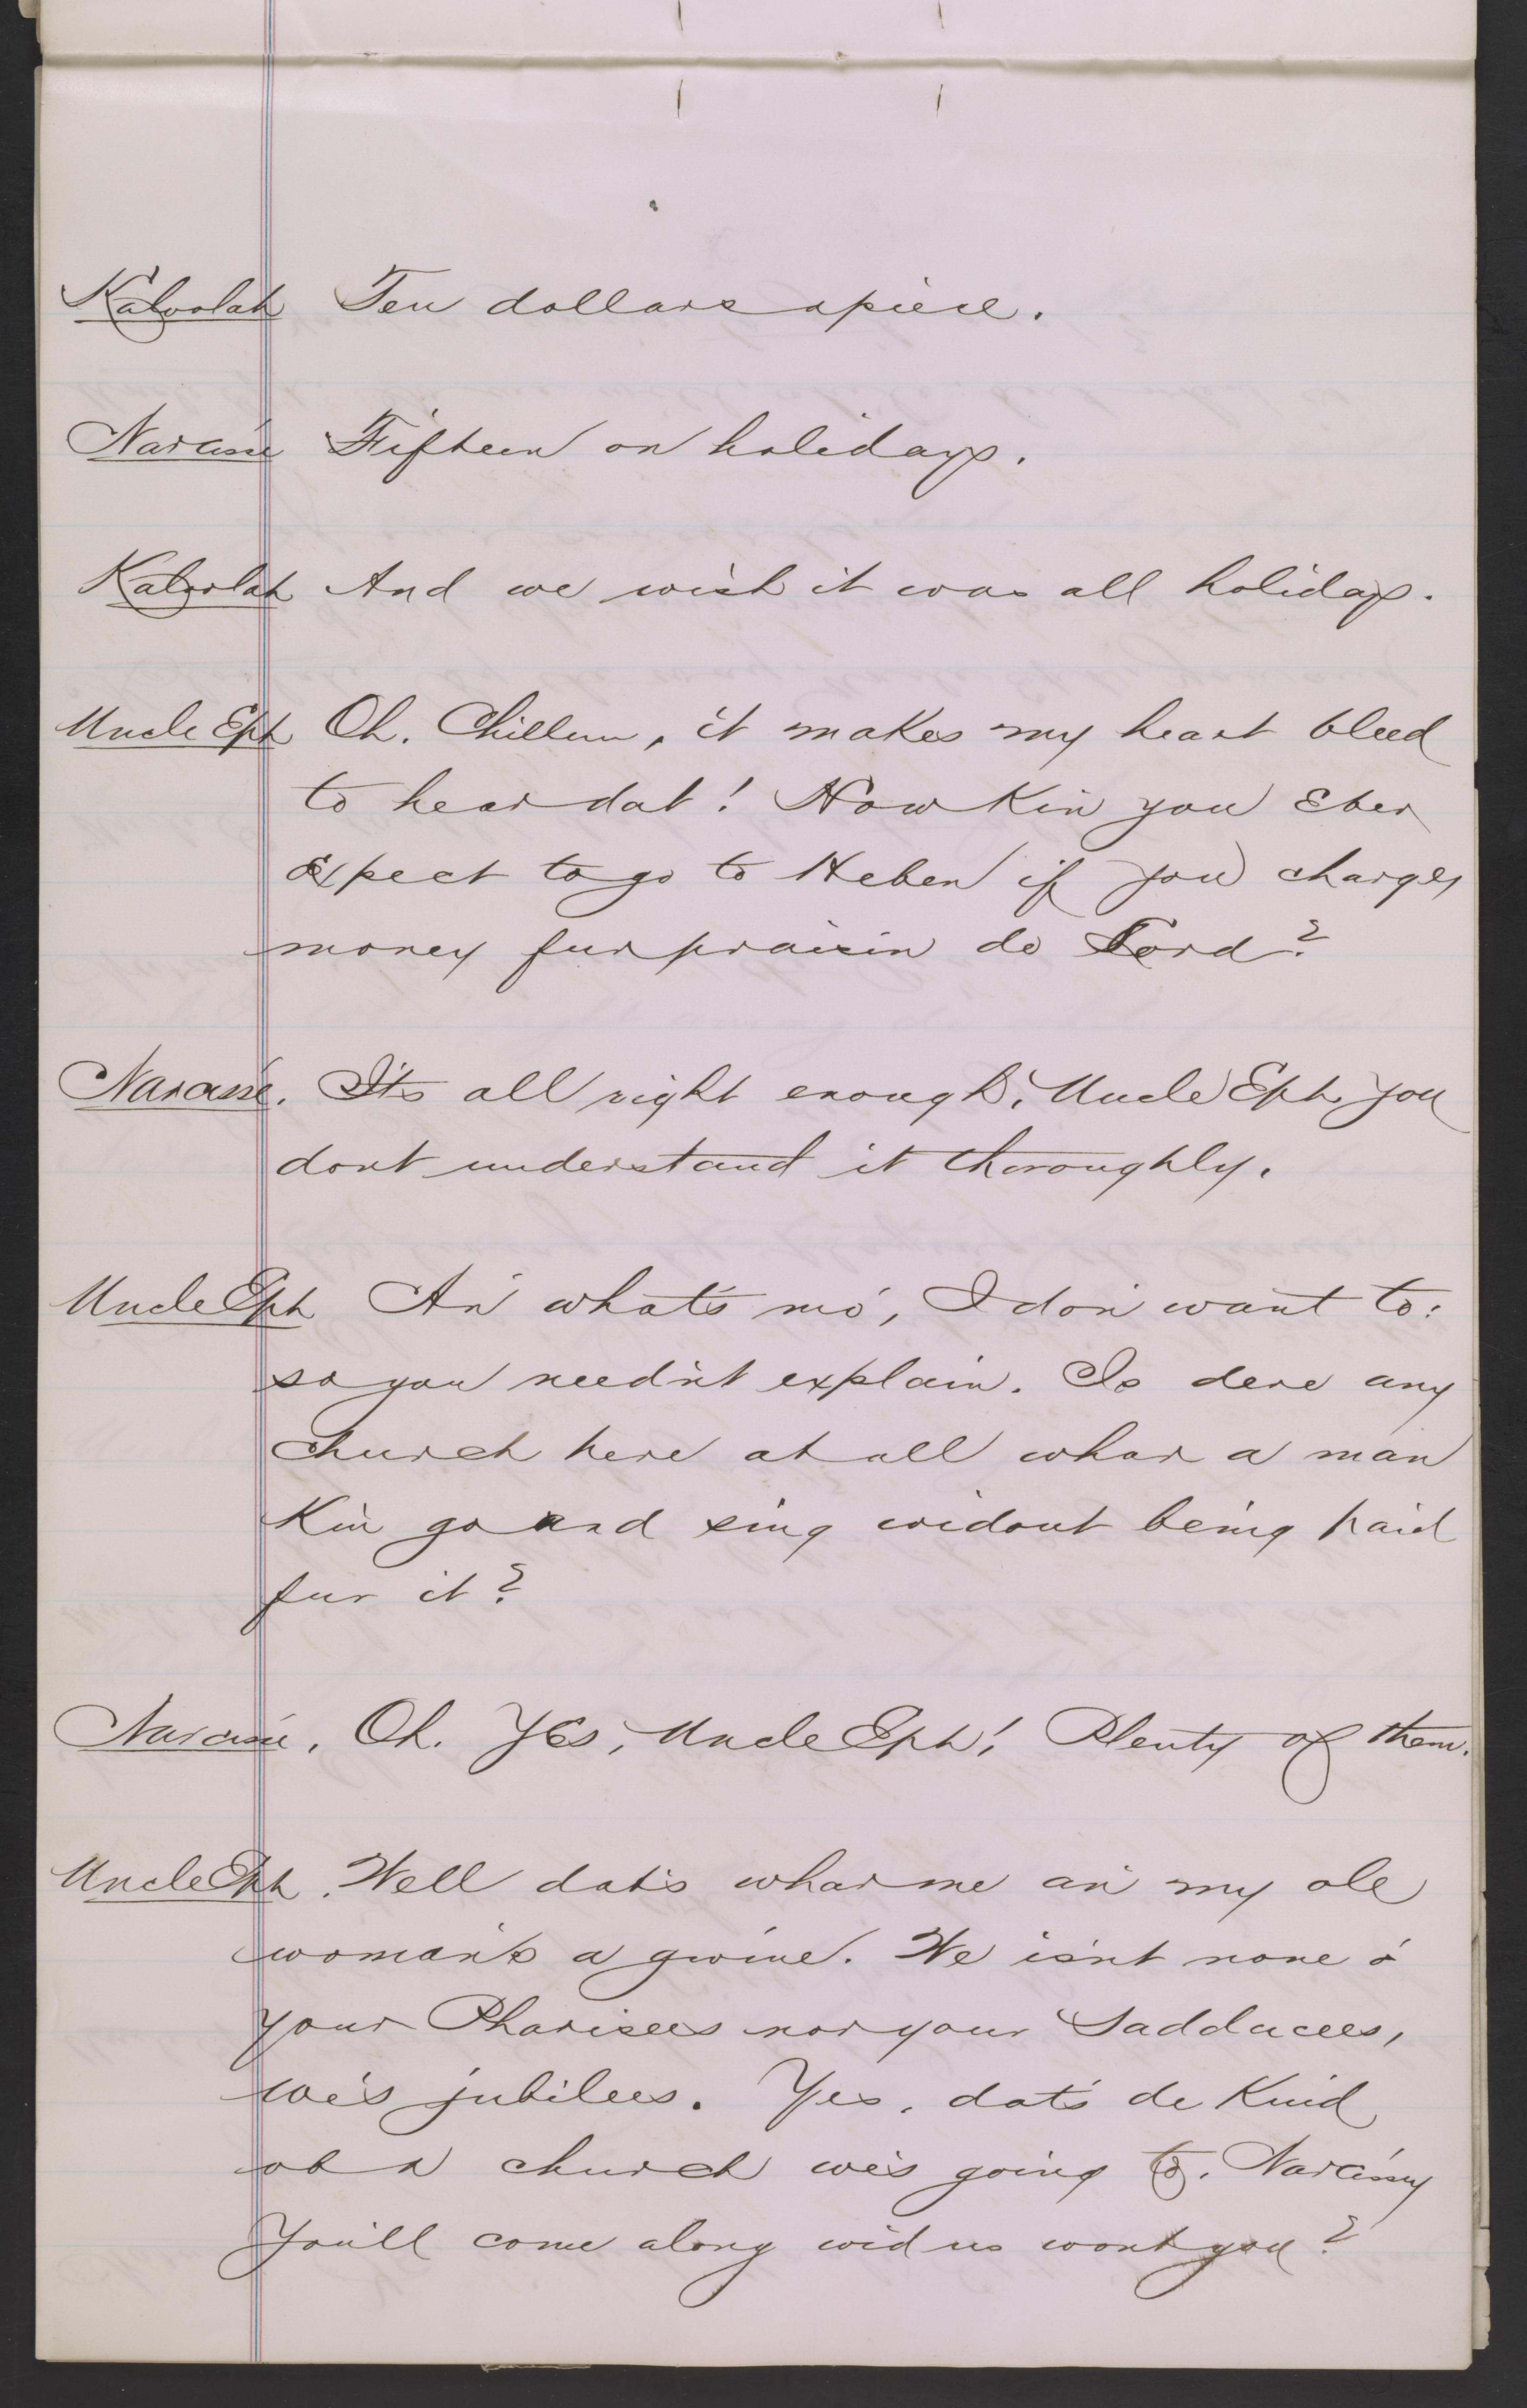 Kaloolah Ten dollars apiece.
Narcisse Fifteen on holidays.
Kaloolah And we wish it was all holidays.
Uncle Eph Oh. Chillun, it makes my heart bleed
to hear dat! How Kin you Eber
expect to go to Heben if you charges
money fur praisin de Lord?
Narcisse. It's all right enough, Uncle Eph, you
dont understand it thoroughly.
Uncle Eph An' what's mo', I don' want to:
so you need'nt explain. Is dere any
church here at all whar a man
Kin go and sing widout being paid
fur it?
Narcisse, Oh. Yes, Uncle Eph! Plenty of them.
Uncle Eph. Well dat's whar me an' my ole
woman's a gwine. We is'nt none o'
your Pharisees nor your Sadducees,
we's jubilees. Yes, dat's de Kind
ob a church we's going to. Narcissy
You'll come along wid us wont you?